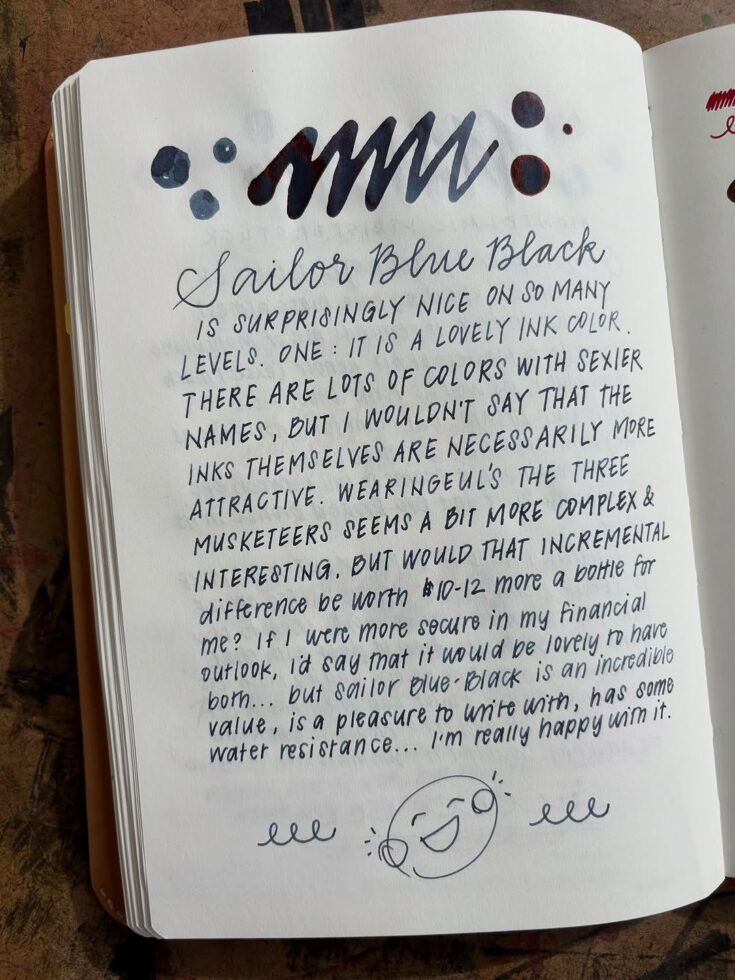 Sailor Blue Black
IS SURPRISINGLY NICE ON SO MANY
LEVELS. ONE: IT IS A LOVELY INK COLOR.
THERE ARE LOTS OF COLORS WITH SEXIER
NAMES, BUT I WOULDN'T SAY THAT THE
INKS THEMSELVES ARE NECESSARILY MORE
ATTRACTIVE. WEARINGEUL'S THE THREE
MUSKETEERS SEEMS A BIT MORE COMPLEX &
INTERESTING, BUT WOULD THAT INCREMENTAL
difference be worth $10-12 more a bottle for
me? If I were more secure in my financial
outlook, I'd say that it would be lovely to have
both... but Sailor Blue-Black is an incredible
value, is a pleasure to write with, has some
water resistance... I'm really happy with it.